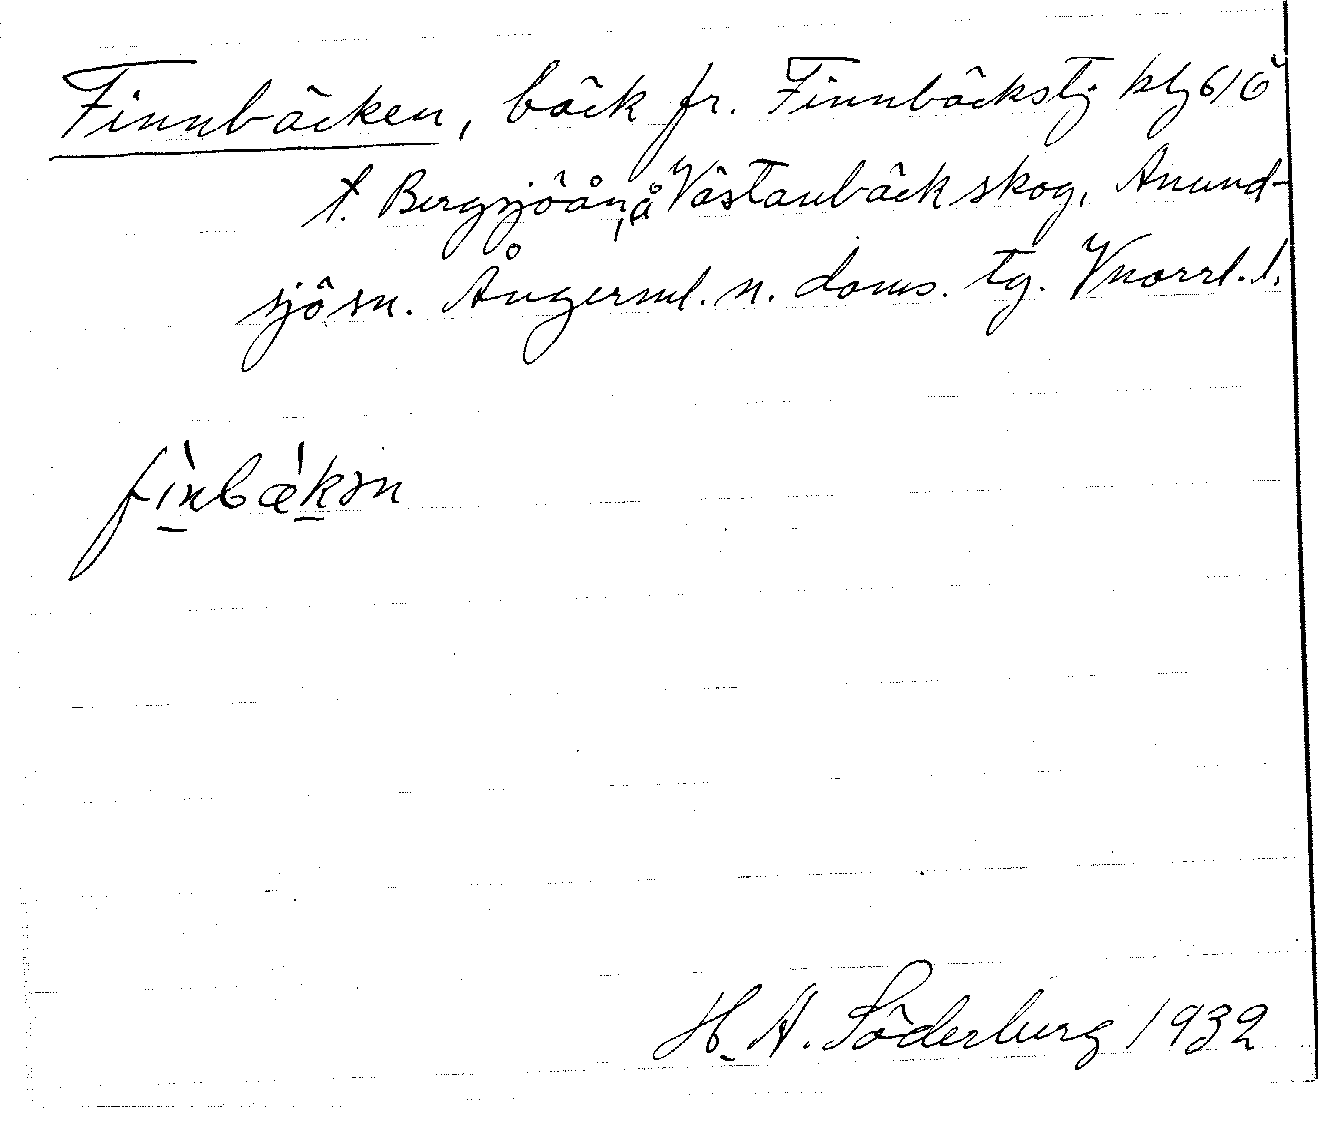 Finnbäcken, bäck fr. Finnbäckstj
t. Bergsjöån, å Västanbäck skog, Anund-
sjö sn. Ångerml. n. doms. tg. Vnorrl. l.
fìnbæ̀kən
H. A. Söderberg 1932